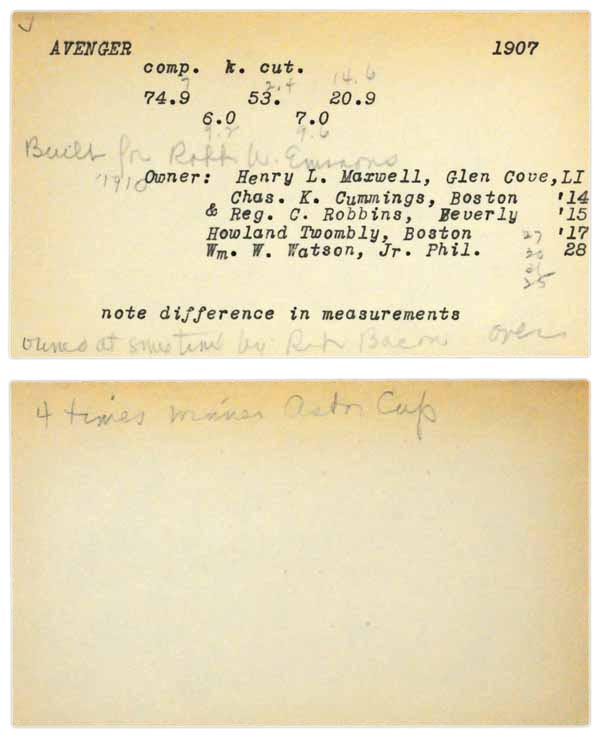 AVENGER 1907
comp. k. cut.
7 2.4 14.6
74.9 53. 20.9
6.0 7.0
9.2 9.6
Built for Robt W. Emmons
'1910 Owner: Henry L. Maxwell, Glen Cove, LI
Chas. K. Cummings, Boston '14
& Reg. C. Robbins, Beverly '15
Howland Twombly, Boston 27 '17
Wm. W. Watson, Jr. Phil. 20 28
25
note difference in measurements
owned at sometime by Robt Bacon over
4 times winner Astor Cup